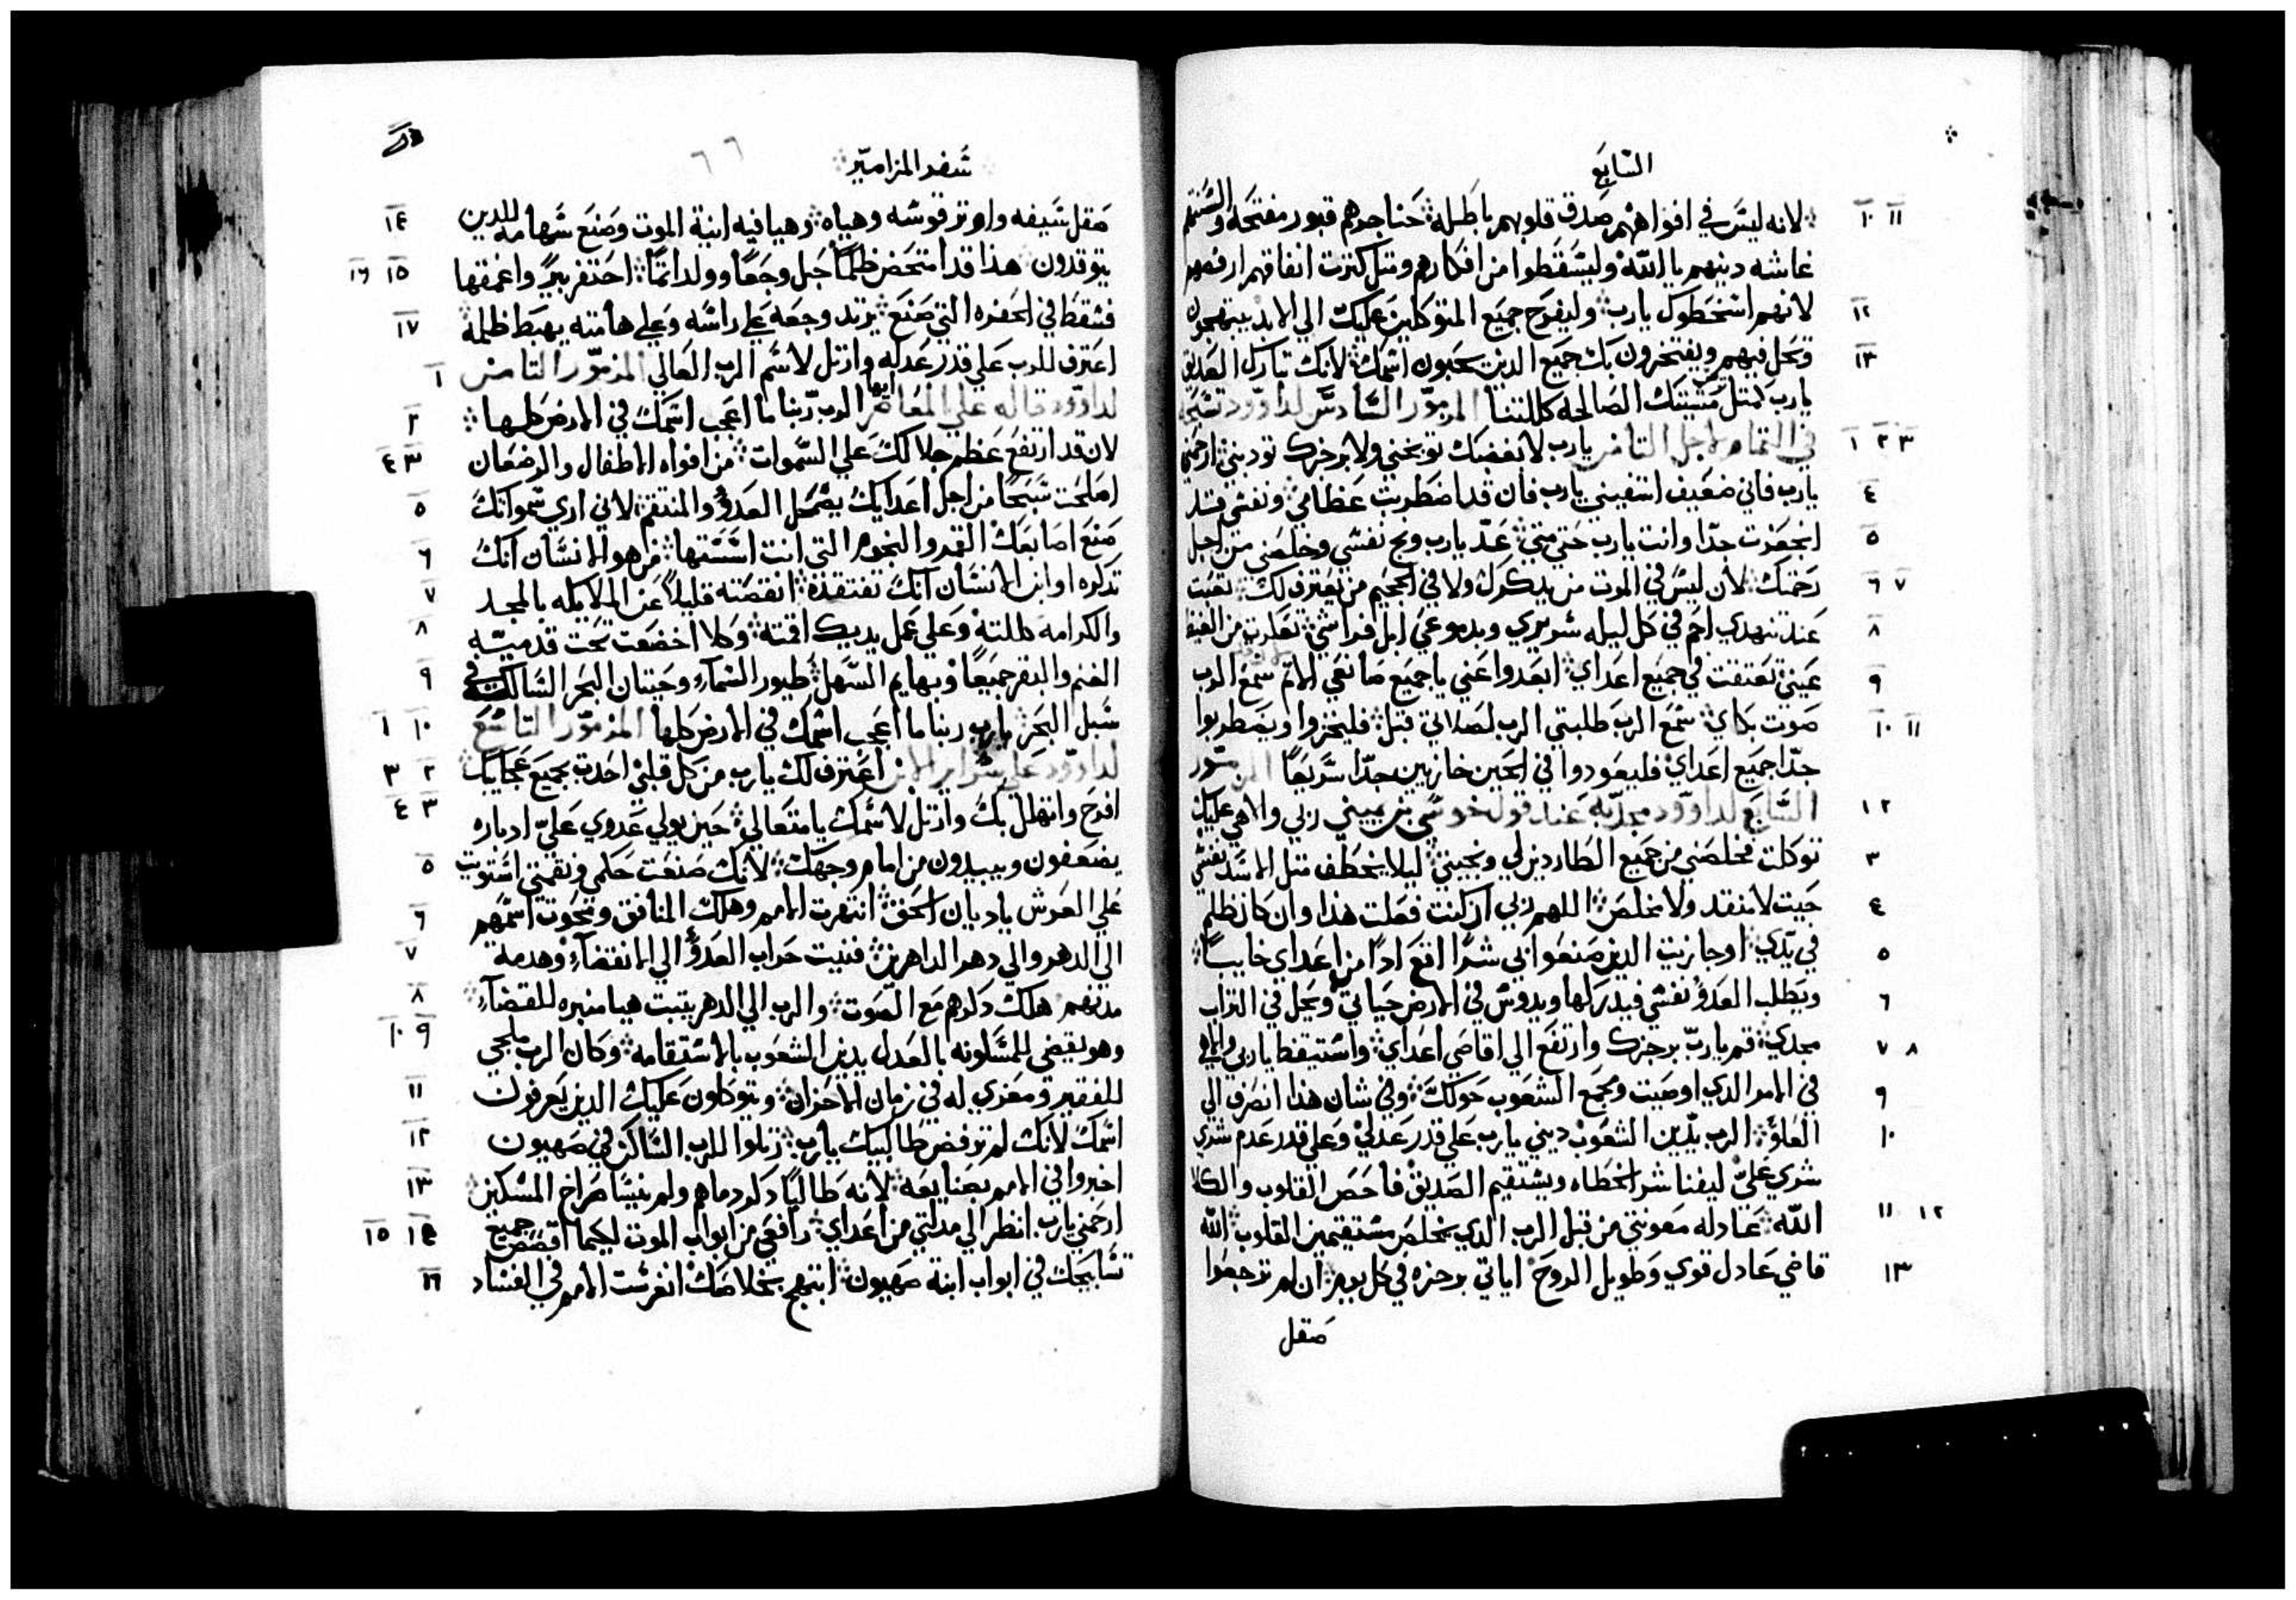 السابع
١٠ ١١ لانه ليس في افواههم صدق قلوبهم باطله حناجرهم قبور مفتحه والسنتهم
غاشه دينهم يا الله وليسقطوا من افكارهم ومتل كترت انفاقهم ارفضهم
١٢ لانهم اسخطوك يارب وليفرح جميع المتوكلين عليك الي الابد يبتهجون
١٣ وتحل فيهم ويفتخرون بك جميع الدين يحبون اسمك لانك تبارك الصديق
يارب كمتل مسرتك الصالحه كللتنا المزمور السادس لداوود تسبحه
١ ٢ ٣ في التمام لاجل التامن يارب لا بغضبك توبخني ولا برجزك تودبني ارحمني
٤ يارب فاني ضعيف اشفيني يارب فان قد اضطربت عظامي ونفسي قد
٥ انجعزت جدا وانت يارب حتي متي عد يارب ونج نفسي وخلصني من اجل
٦ ٧ رحمتك لان ليس في الموت من يدكرك ولا في الجحيم من يعترف لك تعبت
٨ عند تنهدي احم في كل ليله سريري وبدموعي ابل فراشي تعكرت من الغيظ
٩ عيني تعتقت في جميع اعداي ابعدوا عني يا جميع صانعي الاتم سمع الرب
١٠ ١١ صوت بكاي سمع الرب طلبتي الرب لصلاتي قبل فليخزوا ويضطربوا
جدا جميع اعداي فليعودوا في الحين خازيين جدا سريعا المزمور
١ ٢ السابع لداوود عند قول خوسي بن يميني ربي والاهي عليك
٣ توكلت فخلصني من جميع الطاردين لي ونجيني ليلا يخطف متل الاسد نفسي
٤ حيت لا منقد ولا مخلص اللهم ربي ان كنت فعلت هذا وان كان ظلم
٥ في يدي او جازيت الدين صنعوا بي شرا اقع ادا من اعداي خايبا
٦ ويطلب العدو نفسي فيدركها ويدوس في الارض حياتي ويحل في التراب
٧ ٨ مجدي قم يارب برجزك وارتفع الي اقاصي اعداي واستيقظ ياربي والاهي
٩ في الامر الدي اوصيت ومجمع الشعوب حولك وفي شان هذا انصرف الي
١٠ العلو الرب يدين الشعوب ديني يارب علي قدر عدلي وعلي قدر عدم شري
شري علي ليفنا شر الخطاه ويستقيم الصديق فاحص القلوب والكلا
١١ ١٢ الله عادله معونتي من قبل الرب الدي يخلص مستقيمين القلوب الله
١٣ قاضي عادل قوي وطويل الروح اياتي برجزه في كل يوم ان لم ترجعوا
صقل
سفر المزامير
٦٦
١٤ صقل سيفه واوتر قوسه وهياه وهيا فيه انية الموت وصنع سهامه للدين
١٥ ١٦ يتوقدون هذا قد امتحض ظلما حبل وجعا وولد اتما احتفر بيرا واعمقها
١٧ فسقط في الحفره التي صنع يرتد وجعه علي راسه وعلي هامته يهبط ظلمه
١ اعترف للرب علي قدر عدله وارتل لاسم الرب العالي المزمور التامن
٢ لداوود قاله علي المعاصر ايها الرب ربنا ما اعجب اسمك في الارض كلها
٣ ٤ لان قد ارتفع عظم جلالك علي السموات من افواه الاطفال والرضعان
٥ اصلحت سبحا من اجل اعدايك يضمحل العدو والمنتقم لاني اري سمواتك
٦ صنع اصابعك القمر والنجوم التي انت اسستها من هو الانسان انك
٧ تدكره او ابن الانسان انك تفتقده انقصته قليلا عن الملايكه بالمجد
٨ والكرامه كللته وعلي عمل يديك اقمته وكلا اخضعت تحت قدميه
٩ الغنم والبقر جميعا وبهايم السهل طيور السماء وحيتان البحر السالكه في
١٠ ١ سبل البحر يارب ربنا ما اعجب اسمك في الارض كلها المزمور التاسع
٢ ٣ لداوود علي سراير الابن اعترف لك يارب من كل قلبي احدت بجميع عجايبك
٣ ٤ افرح واتهلل بك وارتل لاسمك يا متعالي حين يولي عدوي علي ادباره
٥ يضعفون ويبيدون من امام وجهك لانك صنعت حكمي ونقمتي استويت
٦ علي العرش يا ديان الحق انتهرت الامم وهلك المنافق ومحوت اسمهم
٧ الي الدهر والي دهر الداهرين فنيت حراب العدو الي الانقضاء وهدمة
٨ مدنهم هلك دكرهم مع الصوت والرب الي الدهر يتبت هيا منبره للقضاء
٩ ١٠ وهو يقضي للمسكونه بالعدل يدين الشعوب بالاستقامه وكان الرب ملجي
١١ للفقير ومعزي له في زمان الاحزان ويتوكلون عليك الدين يعرفون
١٢ اسمك لانك لم ترفض طالبيك يارب رتلوا للرب الساكن في صهيون
١٣ اخبروا في الامم بصنايعه لانه طالبا دكر دماهم ولم ينسا صراخ المسكين
١٤ ١٥ ارحمني يارب انظر الي مدلتي من اعداي رافعي من ابواب الموت لكيما اقصص جميع
١٦ تسابيحك في ابواب ابنة صهيون ابتهج بخلاصك انغرست الامم في الفساد